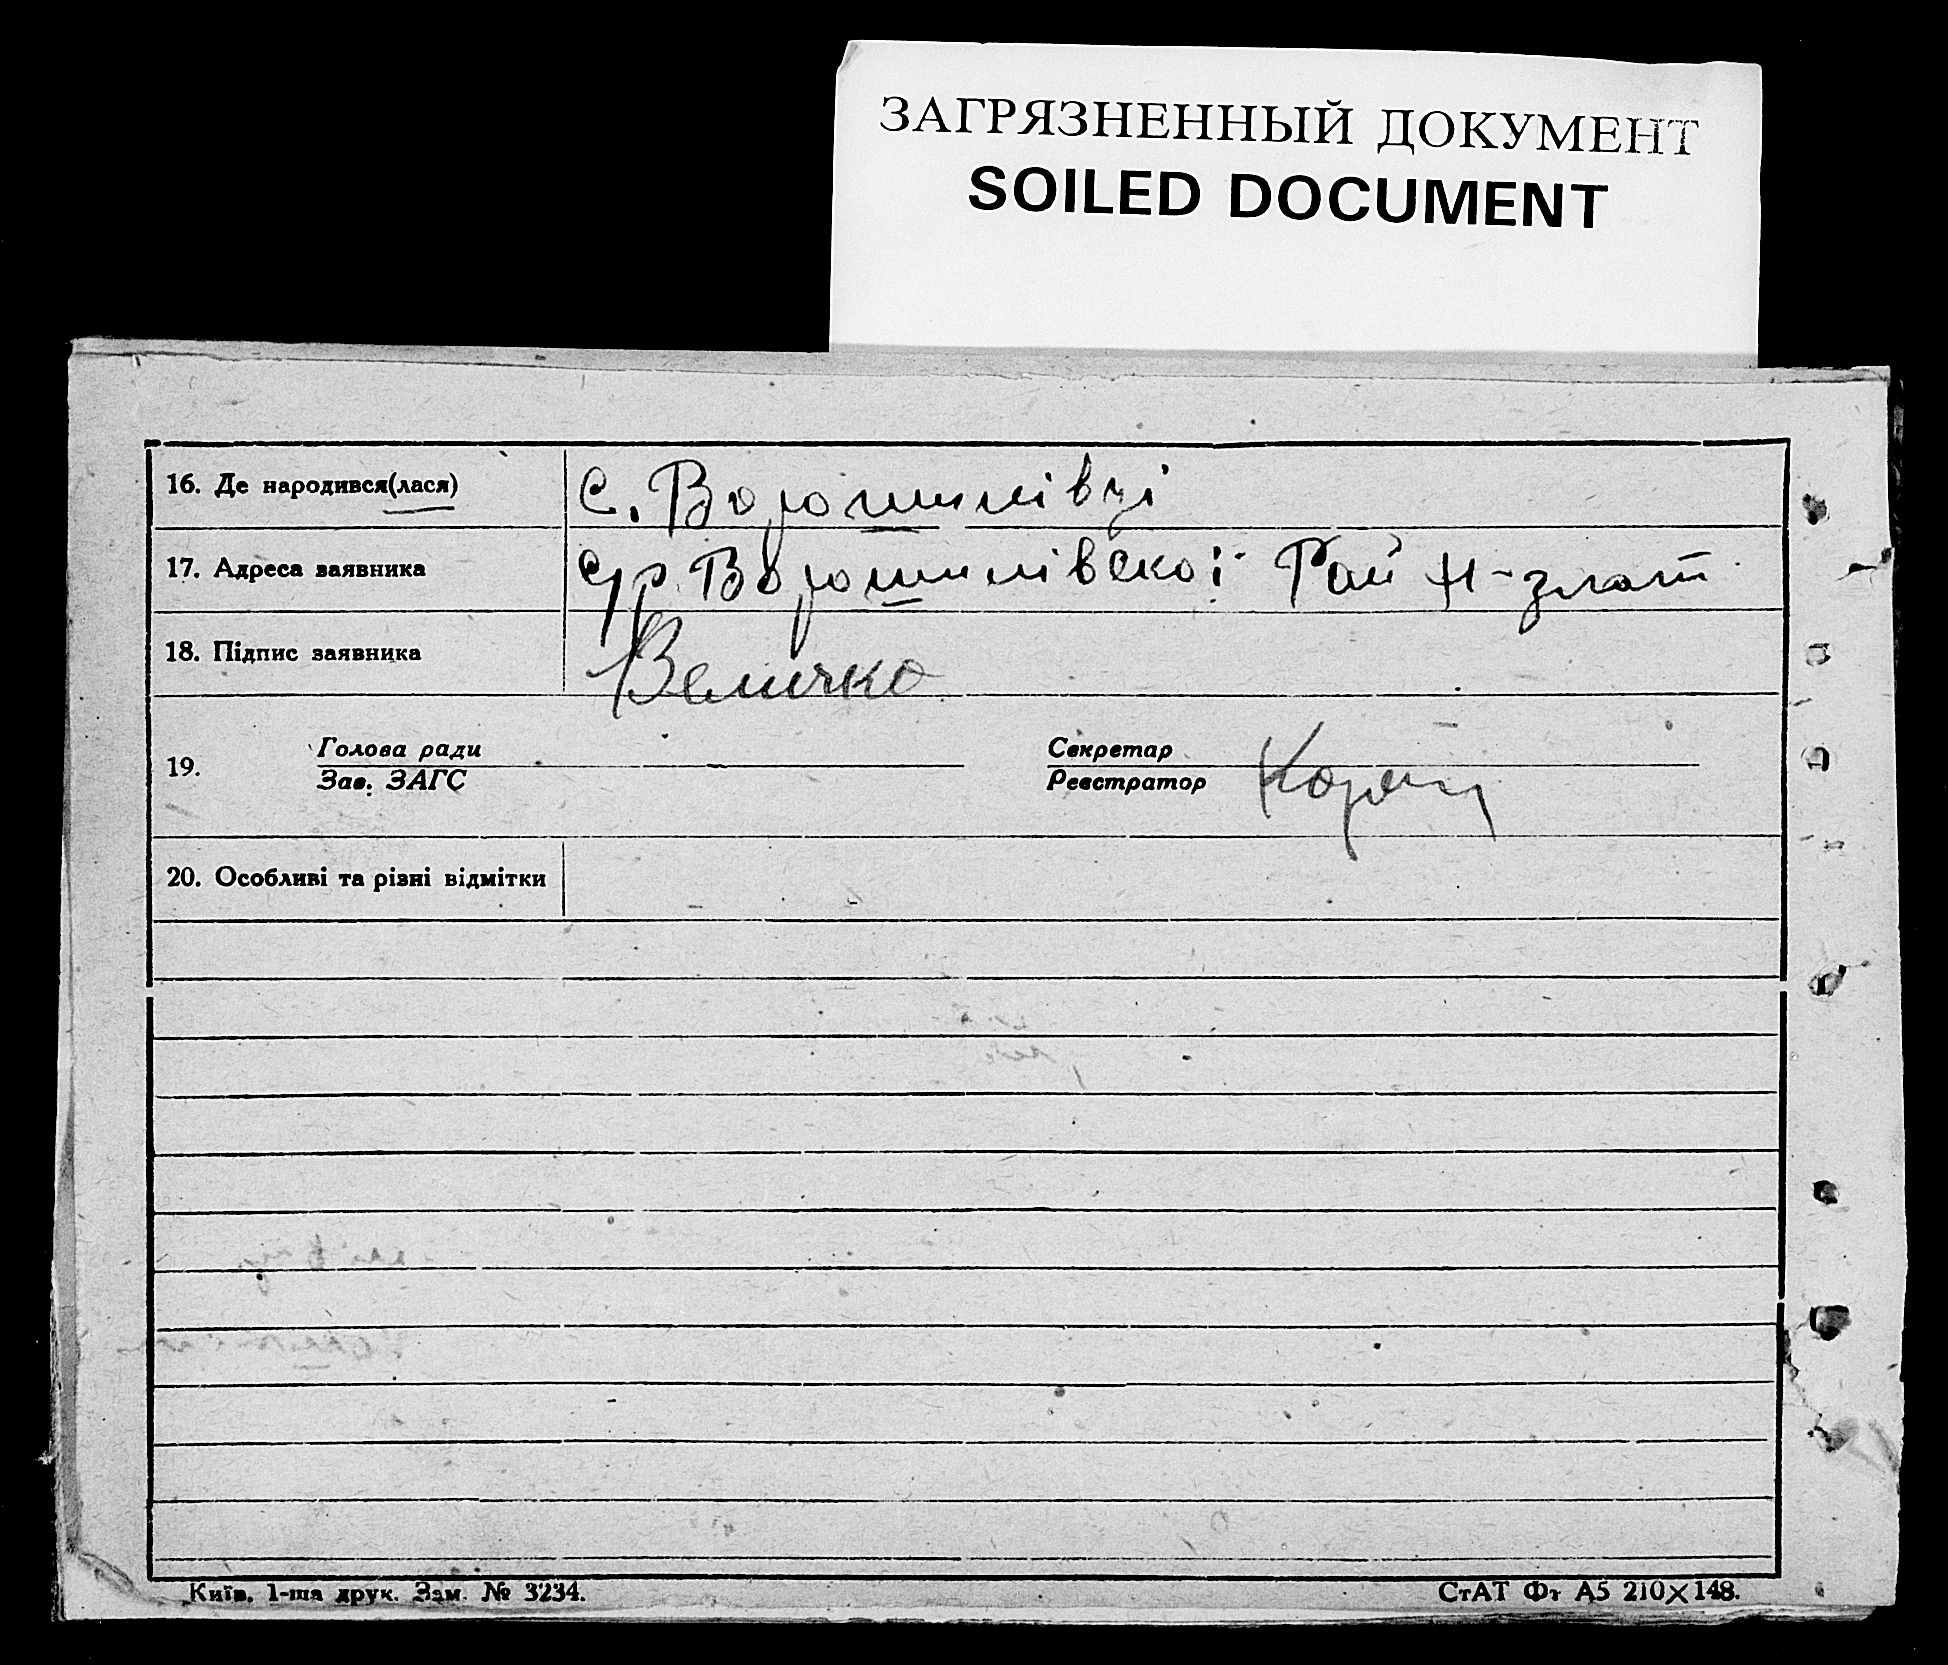 ЗАГРЯЗНЕННЫЙ ДОКУМЕНТ
SOILED DOCUMENT
16. Де народився(лася) С. Ворошилівці
17. Адреса заявника с/р Ворошилівскої Рай Н-злат
18. Підпис заявника Величко
19. Голова ради
Зав. ЗАГС
Секретар
Реєстратор
20. Особливі та різні відмітки
Київ. 1-ша друк. Зам. № 3234.
СтАТ Фт А5 210×148.